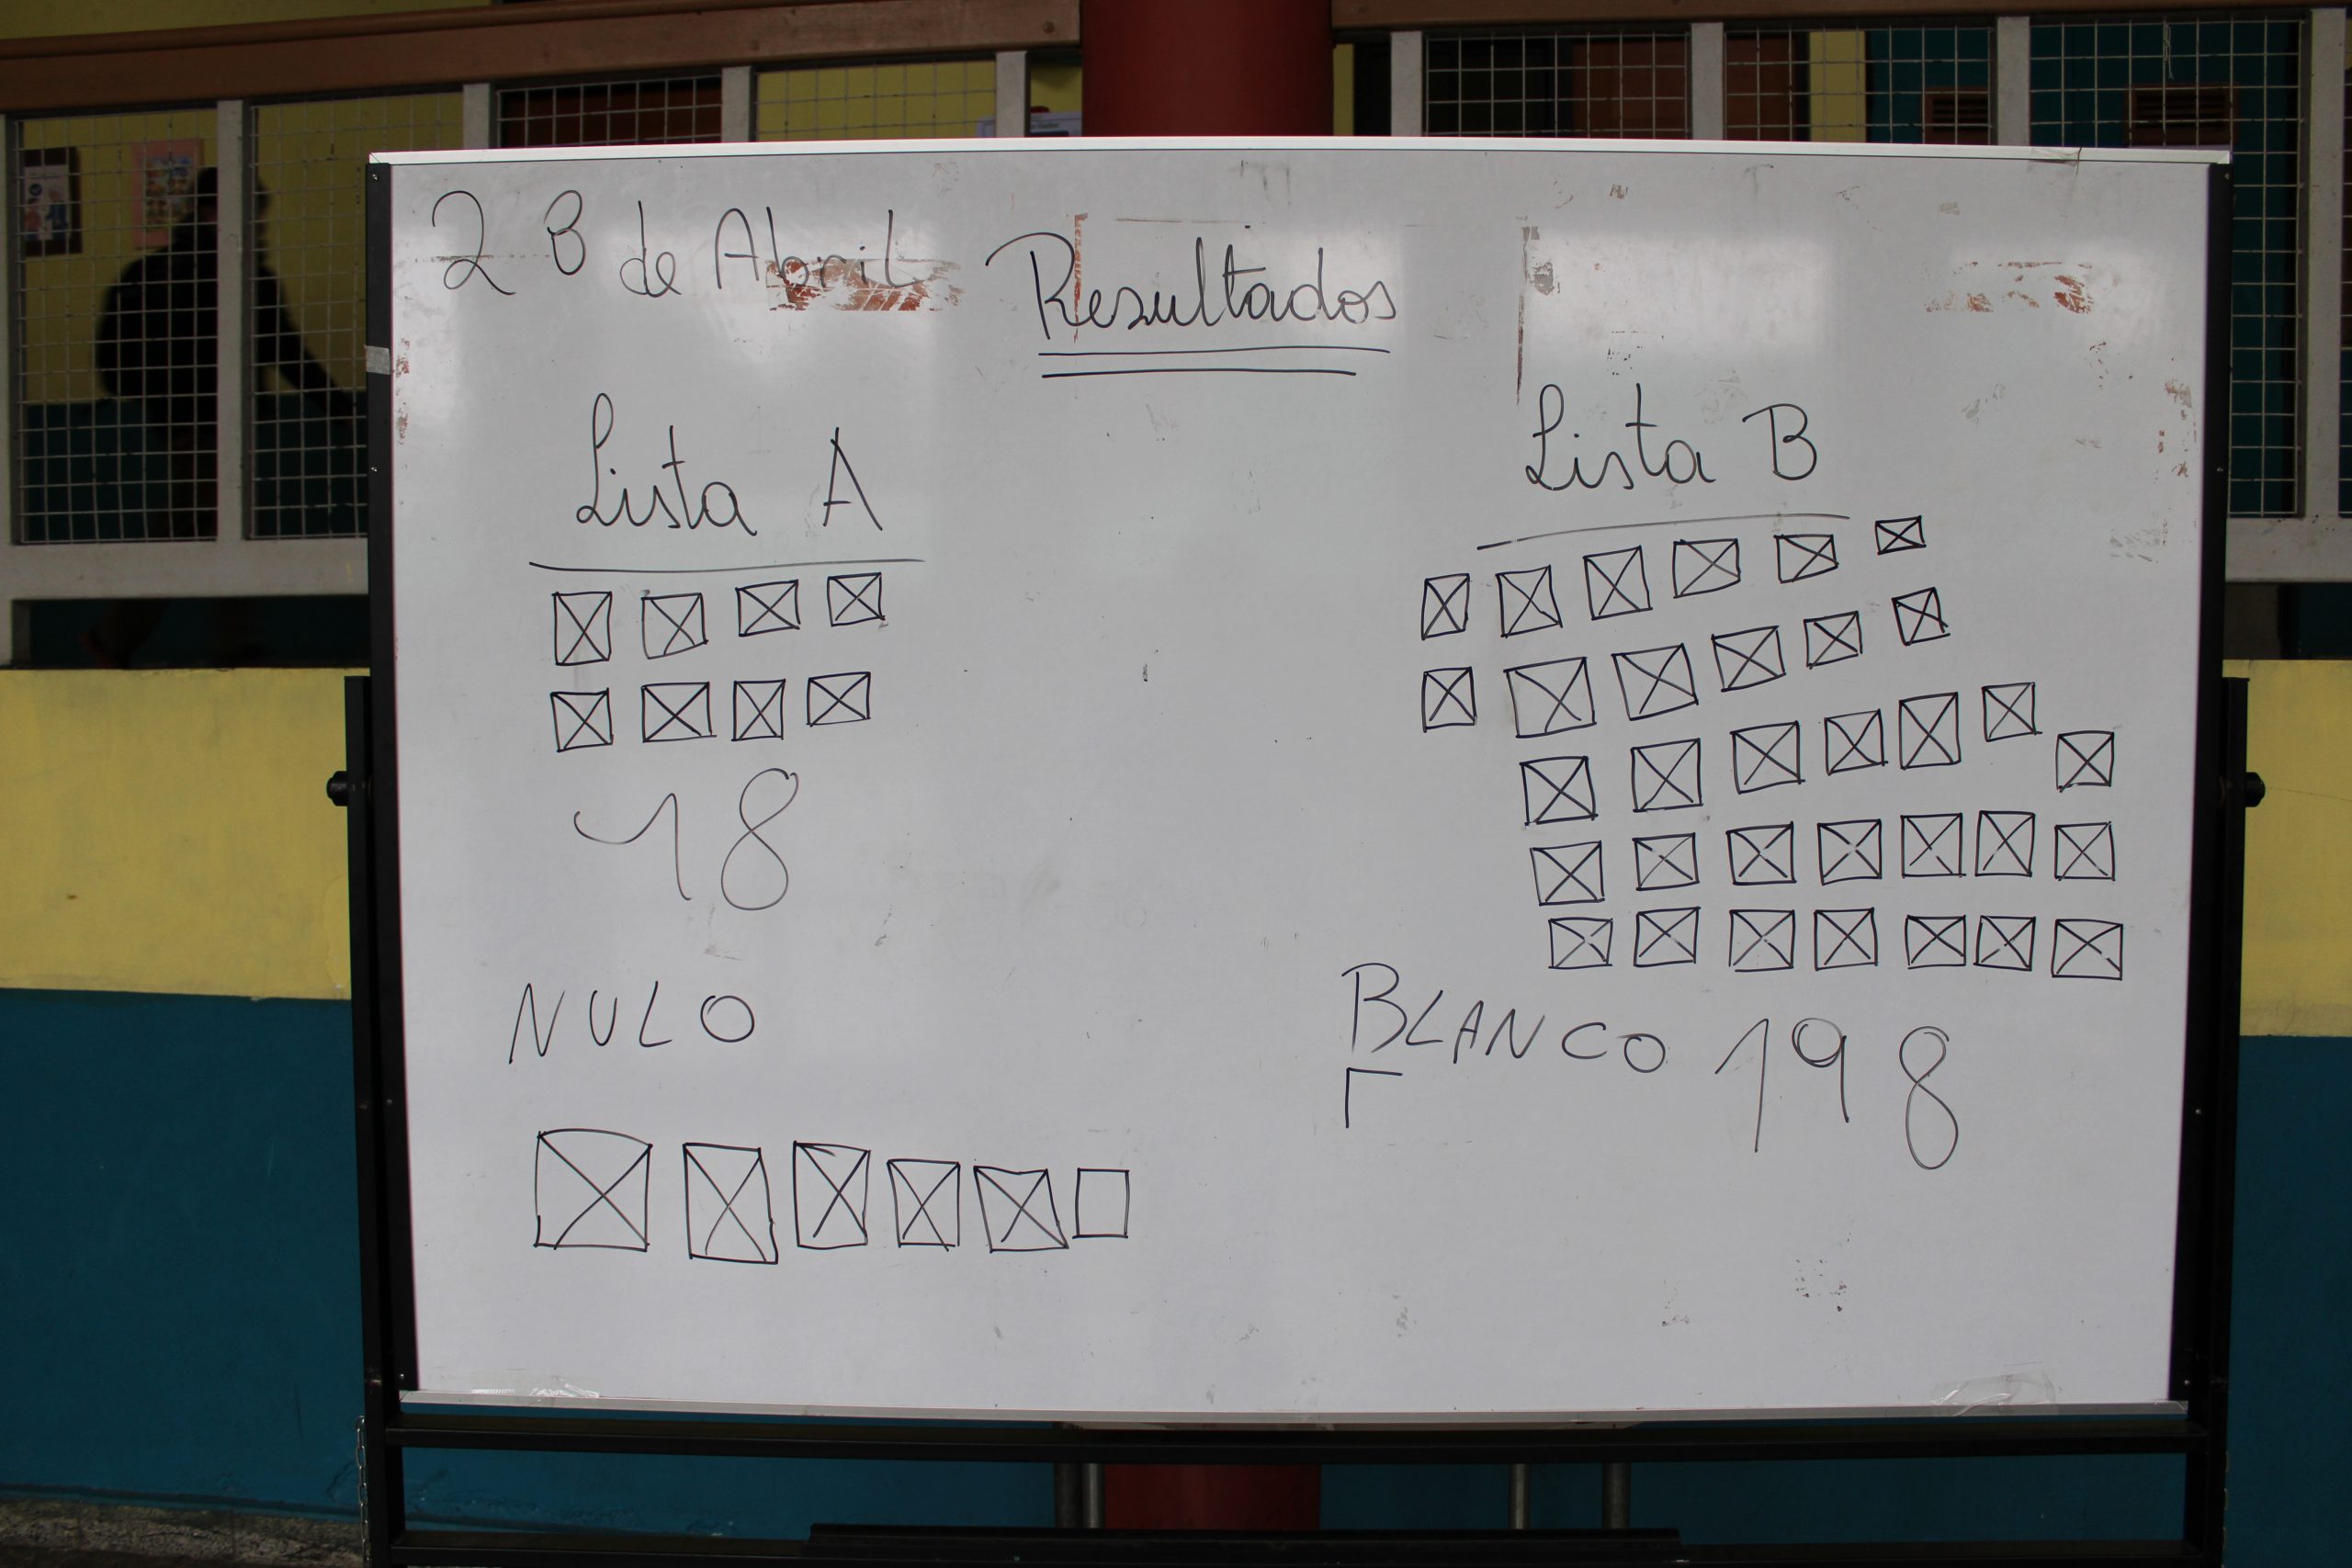 28 de Abril
Resultados
Lista A
Lista B
48
NULO
BLANCO
198